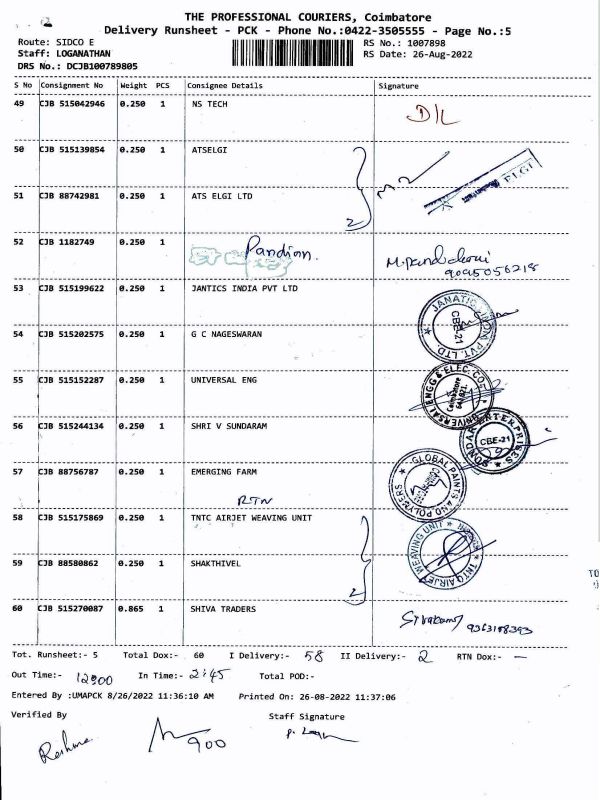 THE PROFESSIONAL COURIERS, Coimbatore
Delivery Runsheet - PCK - Phone No.:0422-3505555 - Page No.:5
Route: SIDCO E RS No.: 1007898
Staff: LOGANATHAN RS Date: 26-Aug-2022
DRS No.: DCJB100789805
S No Consignment No Weight PCS Consignee Details Signature
49 CJB 515042946 0.250 1 NS TECH D/L
50 CJB 515139854 0.250 1 ATSELGI
ELGI
51 CJB 88742981 0.250 1 ATS ELGI LTD
2
52 CJB 1182749 0.250 1 Pandian.
9095056218
53 CJB 515199622 0.250 1 JANTICS INDIA PVT LTD
JANATICS INDIA PVT. LTD. CBE-21
54 CJB 515202575 0.250 1 G C NAGESWARAN
55 CJB 515152287 0.250 1 UNIVERSAL ENG
UNIVERSAL ENGG & ELEC. CO. Coimbatore 641 021.
56 CJB 515244134 0.250 1 SHRI V SUNDARAM
ENTERPRISES CBE-21
57 CJB 88756787 0.250 1 EMERGING FARM
GLOBAL PAINTS AND POLYMERS
RTN
58 CJB 515175869 0.250 1 TNTC AIRJET WEAVING UNIT
TNTC AIRJET WEAVING UNIT
59 CJB 88580862 0.250 1 SHAKTHIVEL
2
60 CJB 515270087 0.865 1 SHIVA TRADERS
Tot. Runsheet:- 5 Total Dox:- 60 I Delivery:- 58 II Delivery:- 2 RTN Dox:- —
Out Time:- 12:00 In Time:- 2:45 Total POD:-
Entered By :UMAPCK 8/26/2022 11:36:10 AM Printed On: 26-08-2022 11:37:06
Verified By Staff Signature
900